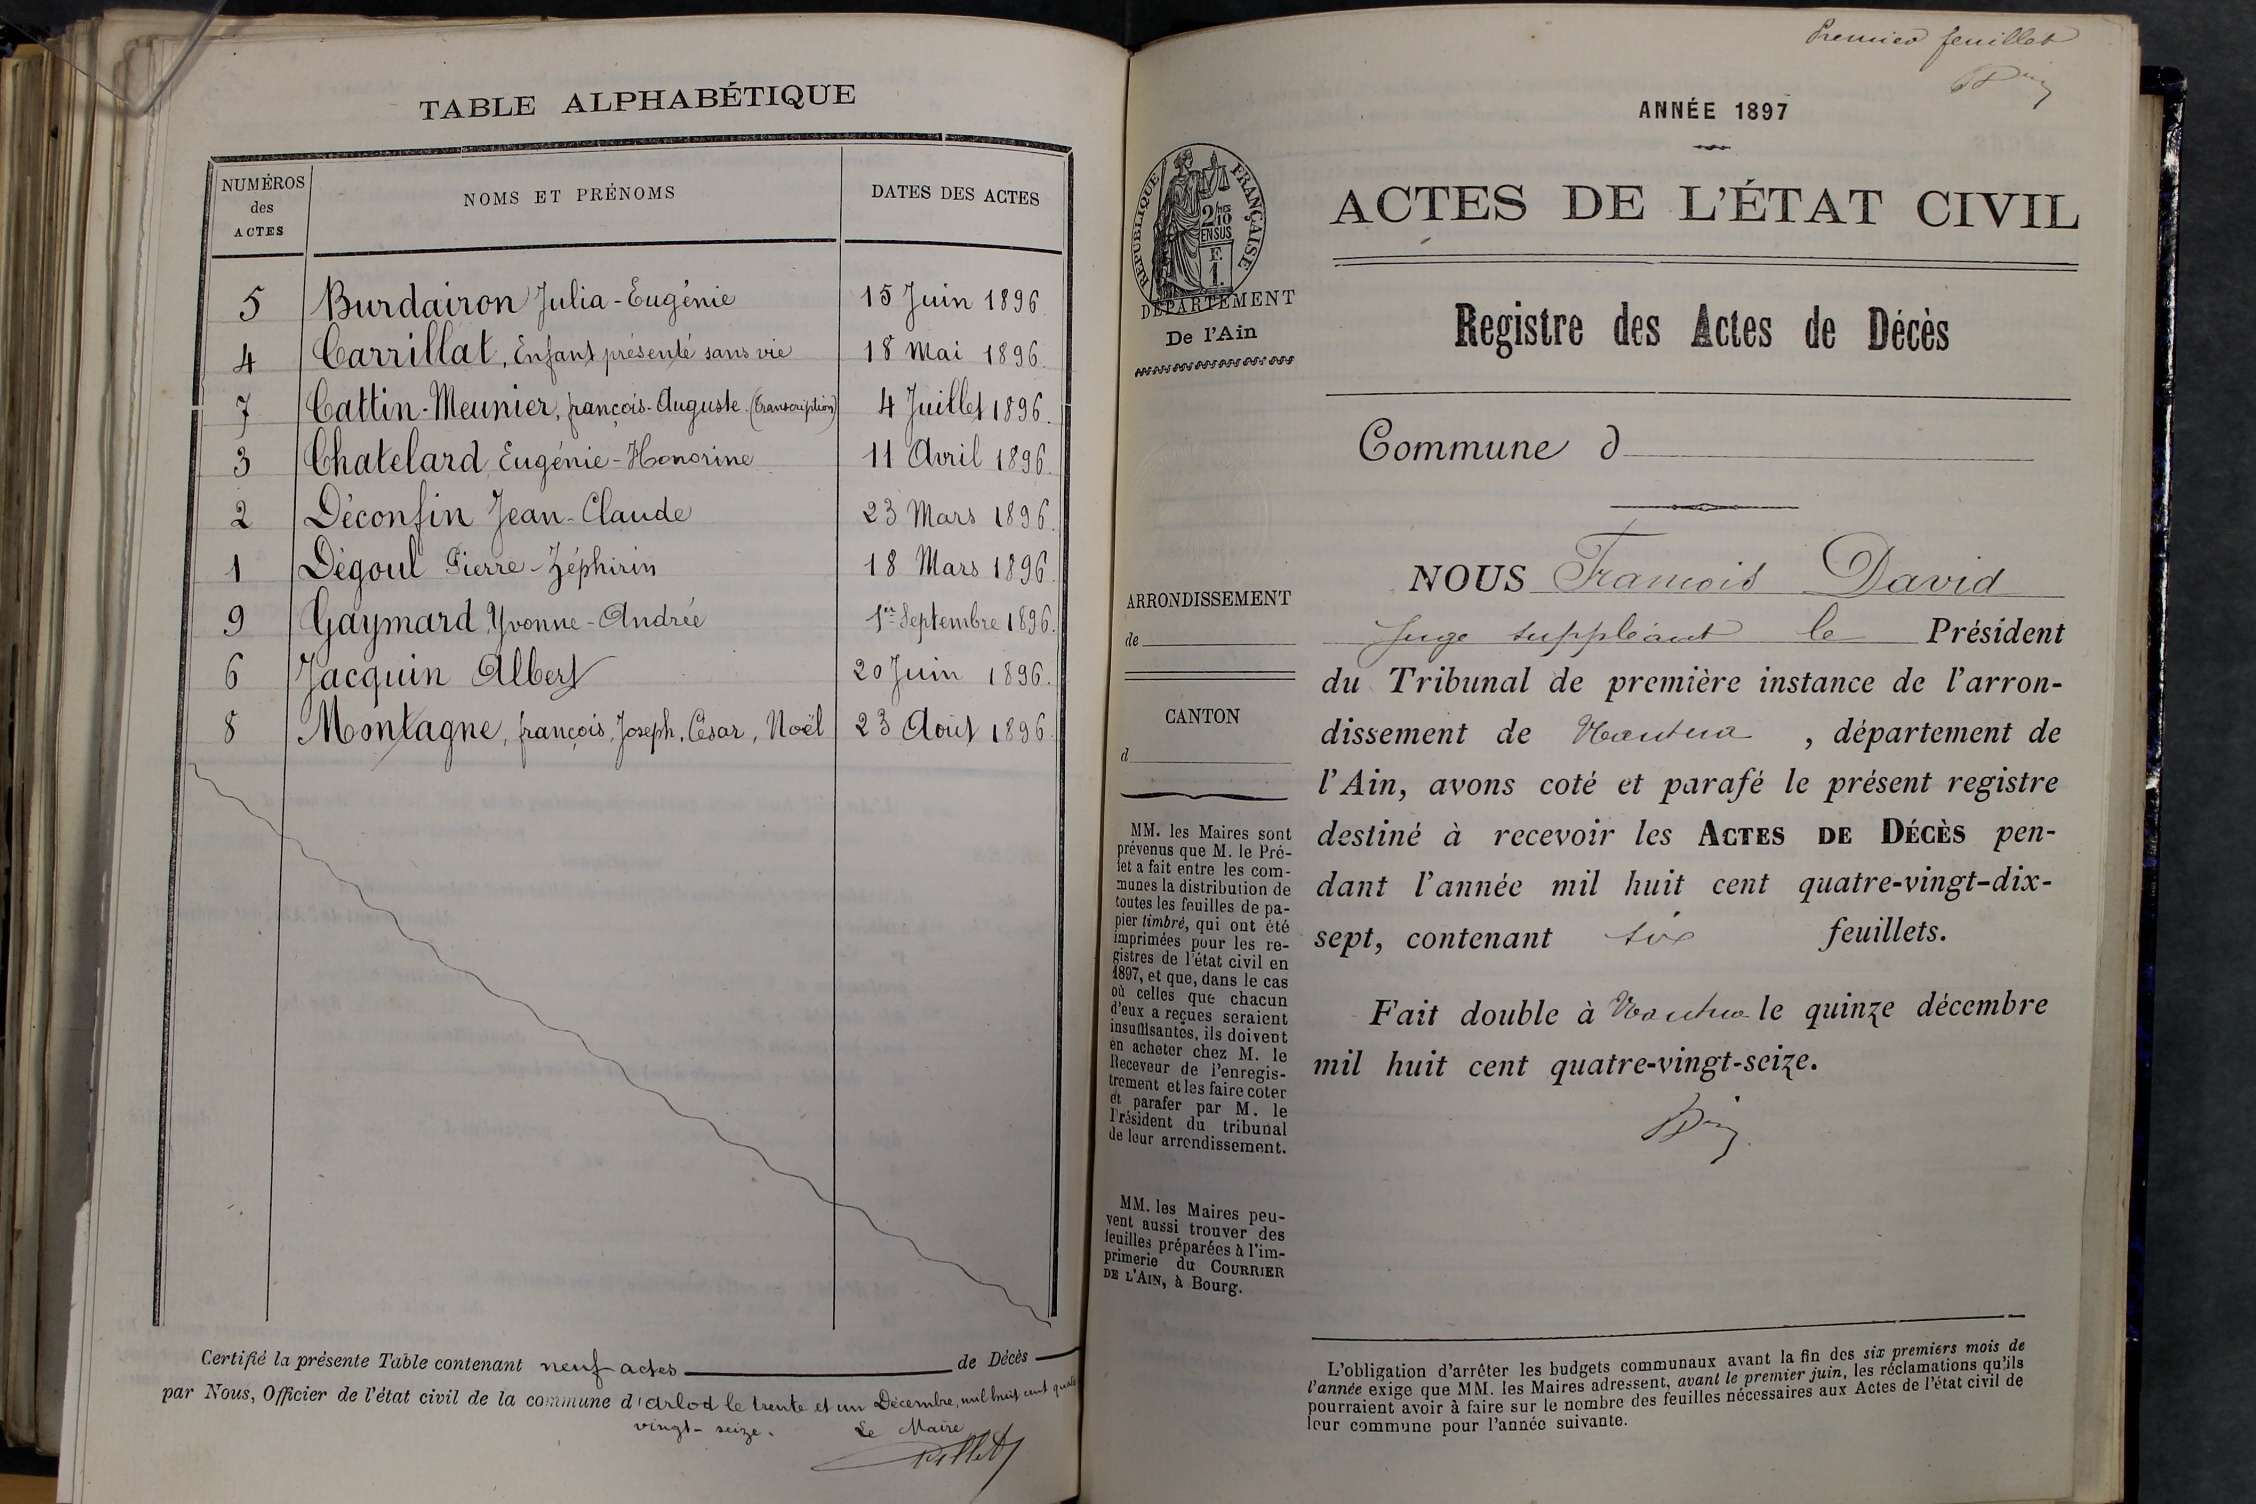 TABLE ALPHABÉTIQUE
NUMÉROS des ACTES NOMS ET PRÉNOMS DATES DES ACTES
5 Burdairon Julia-Eugénie 15 Juin 1896
4 Carrillat, Enfant présenté sans vie 18 Mai 1896.
7 Cattin-Meunier, françois-Auguste (transcription) 4 Juillet 1896.
3 Chatelard Eugénie-Honorine 11 Avril 1896
2 Déconfin Jean-Claude 23 Mars 1896.
1 Dégoul Pierre-Zéphirin 18 Mars 1896.
9 Gaymard Yvonne-Andrée 1er Septembre 1896.
6 Jacquin Albert 20 Juin 1896.
8 Montagne, françois, Joseph, César, Noël 23 Août 1896
Certifié la présente Table contenant neuf actes de Décès
par Nous, Officier de l'état civil de la commune d'Arlod le trente et un Décembre, mil huit cent quatre
vingt-seize. Le Maire
Premier feuillet
ANNÉE 1897
RÉPUBLIQUE FRANÇAISE
2/10mes
EN SUS
F.
1.
DÉPARTEMENT
De l'Ain
ACTES DE L'ÉTAT CIVIL
Registre des Actes de Décès
Commune d
NOUS François David
Juge suppléant le Président
du Tribunal de première instance de l'arron-
dissement de Nantua, département de
l'Ain, avons coté et parafé le présent registre
destiné à recevoir les ACTES DE DÉCÈS pen-
dant l'année mil huit cent quatre-vingt-dix-
sept, contenant six feuillets.
Fait double à Nantua le quinze décembre
mil huit cent quatre-vingt-seize.
ARRONDISSEMENT
de
CANTON
d
MM. les Maires sont
prévenus que M. le Pré-
fet a fait entre les com-
munes la distribution de
toutes les feuilles de pa-
pier timbré, qui ont été
imprimées pour les re-
gistres de l'état civil en
1897, et que, dans le cas
où celles que chacun
d'eux a reçues seraient
insuffisantes, ils doivent
en acheter chez M. le
Receveur de l'enregis-
trement et les faire coter
et parafer par M. le
Président du tribunal
de leur arrondissement.
MM. les Maires peu-
vent aussi trouver des
feuilles préparées à l'im-
primerie du COURRIER
DE L'AIN, à Bourg.
L'obligation d'arrêter les budgets communaux avant la fin des six premiers mois de
l'année exige que MM. les Maires adressent, avant le premier juin, les réclamations qu'ils
pourraient avoir à faire sur le nombre des feuilles nécessaires aux Actes de l'état civil de
leur commune pour l'année suivante.